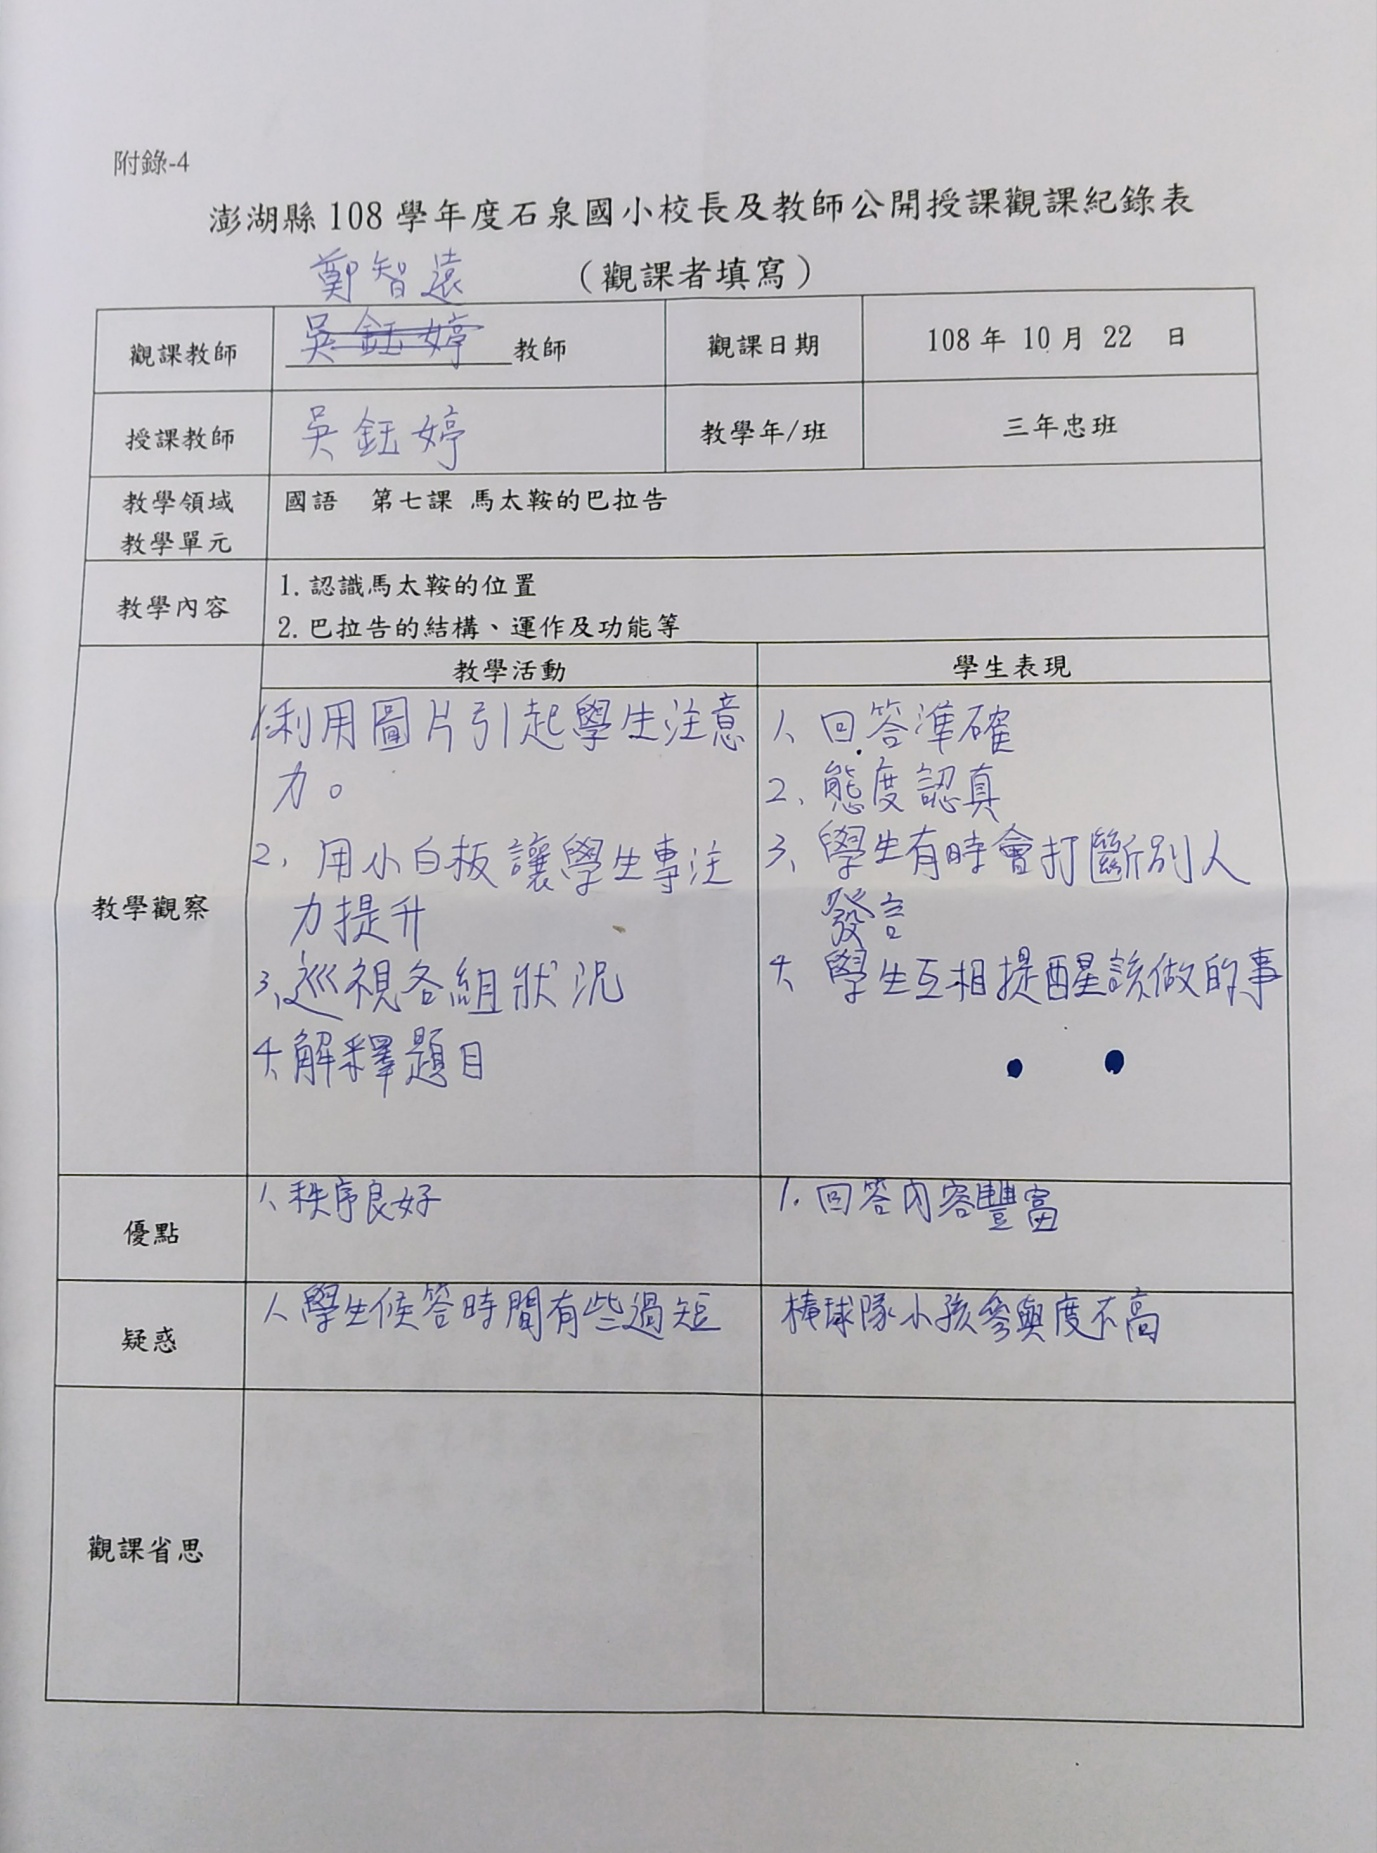 附錄-4
澎湖縣 108 學年度石泉國小校長及教師公開授課觀課紀錄表
鄭智遠 （觀課者填寫）
觀課教師 吳鈺婷 教師 觀課日期 108 年 10 月 22 日
授課教師 吳鈺婷 教學年/班 三年忠班
教學領域 國語 第七課 馬太鞍的巴拉告
教學單元
教學內容
1. 認識馬太鞍的位置
2. 巴拉告的結構、運作及功能等
教學活動 學生表現
教學觀察
1.利用圖片引起學生注意
力。
2、用小白板讓學生專注
力提升
3、巡視各組狀況
4、解釋題目
1、回答準確
2、態度認真
3、學生有時會打斷別人
發言
4、學生互相提醒該做的事
優點
1、秩序良好
1. 回答內容豐富
疑惑
1、學生候答時間有些過短
棒球隊小孩參與度不高
觀課省思